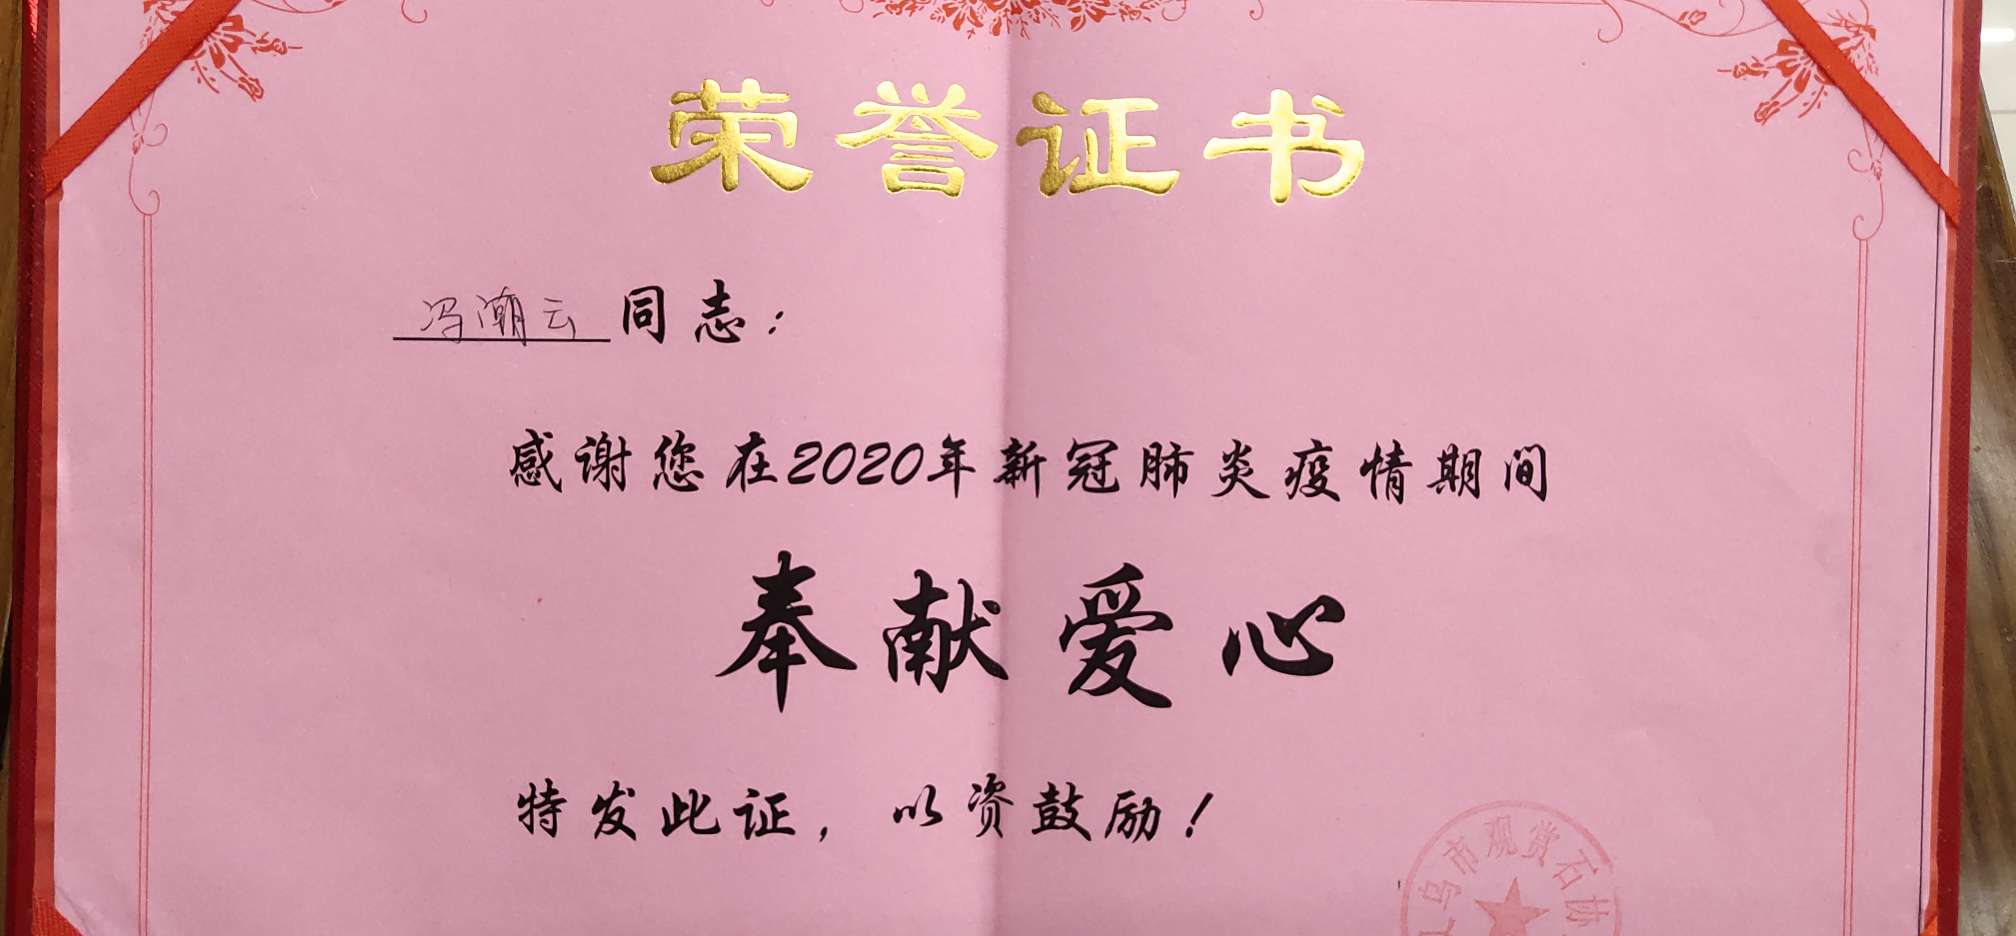 荣誉证书
冯潮云同志：
感谢您在2020年新冠肺炎疫情期间
奉献爱心
特发此证，以资鼓励！
乌市观赏石协